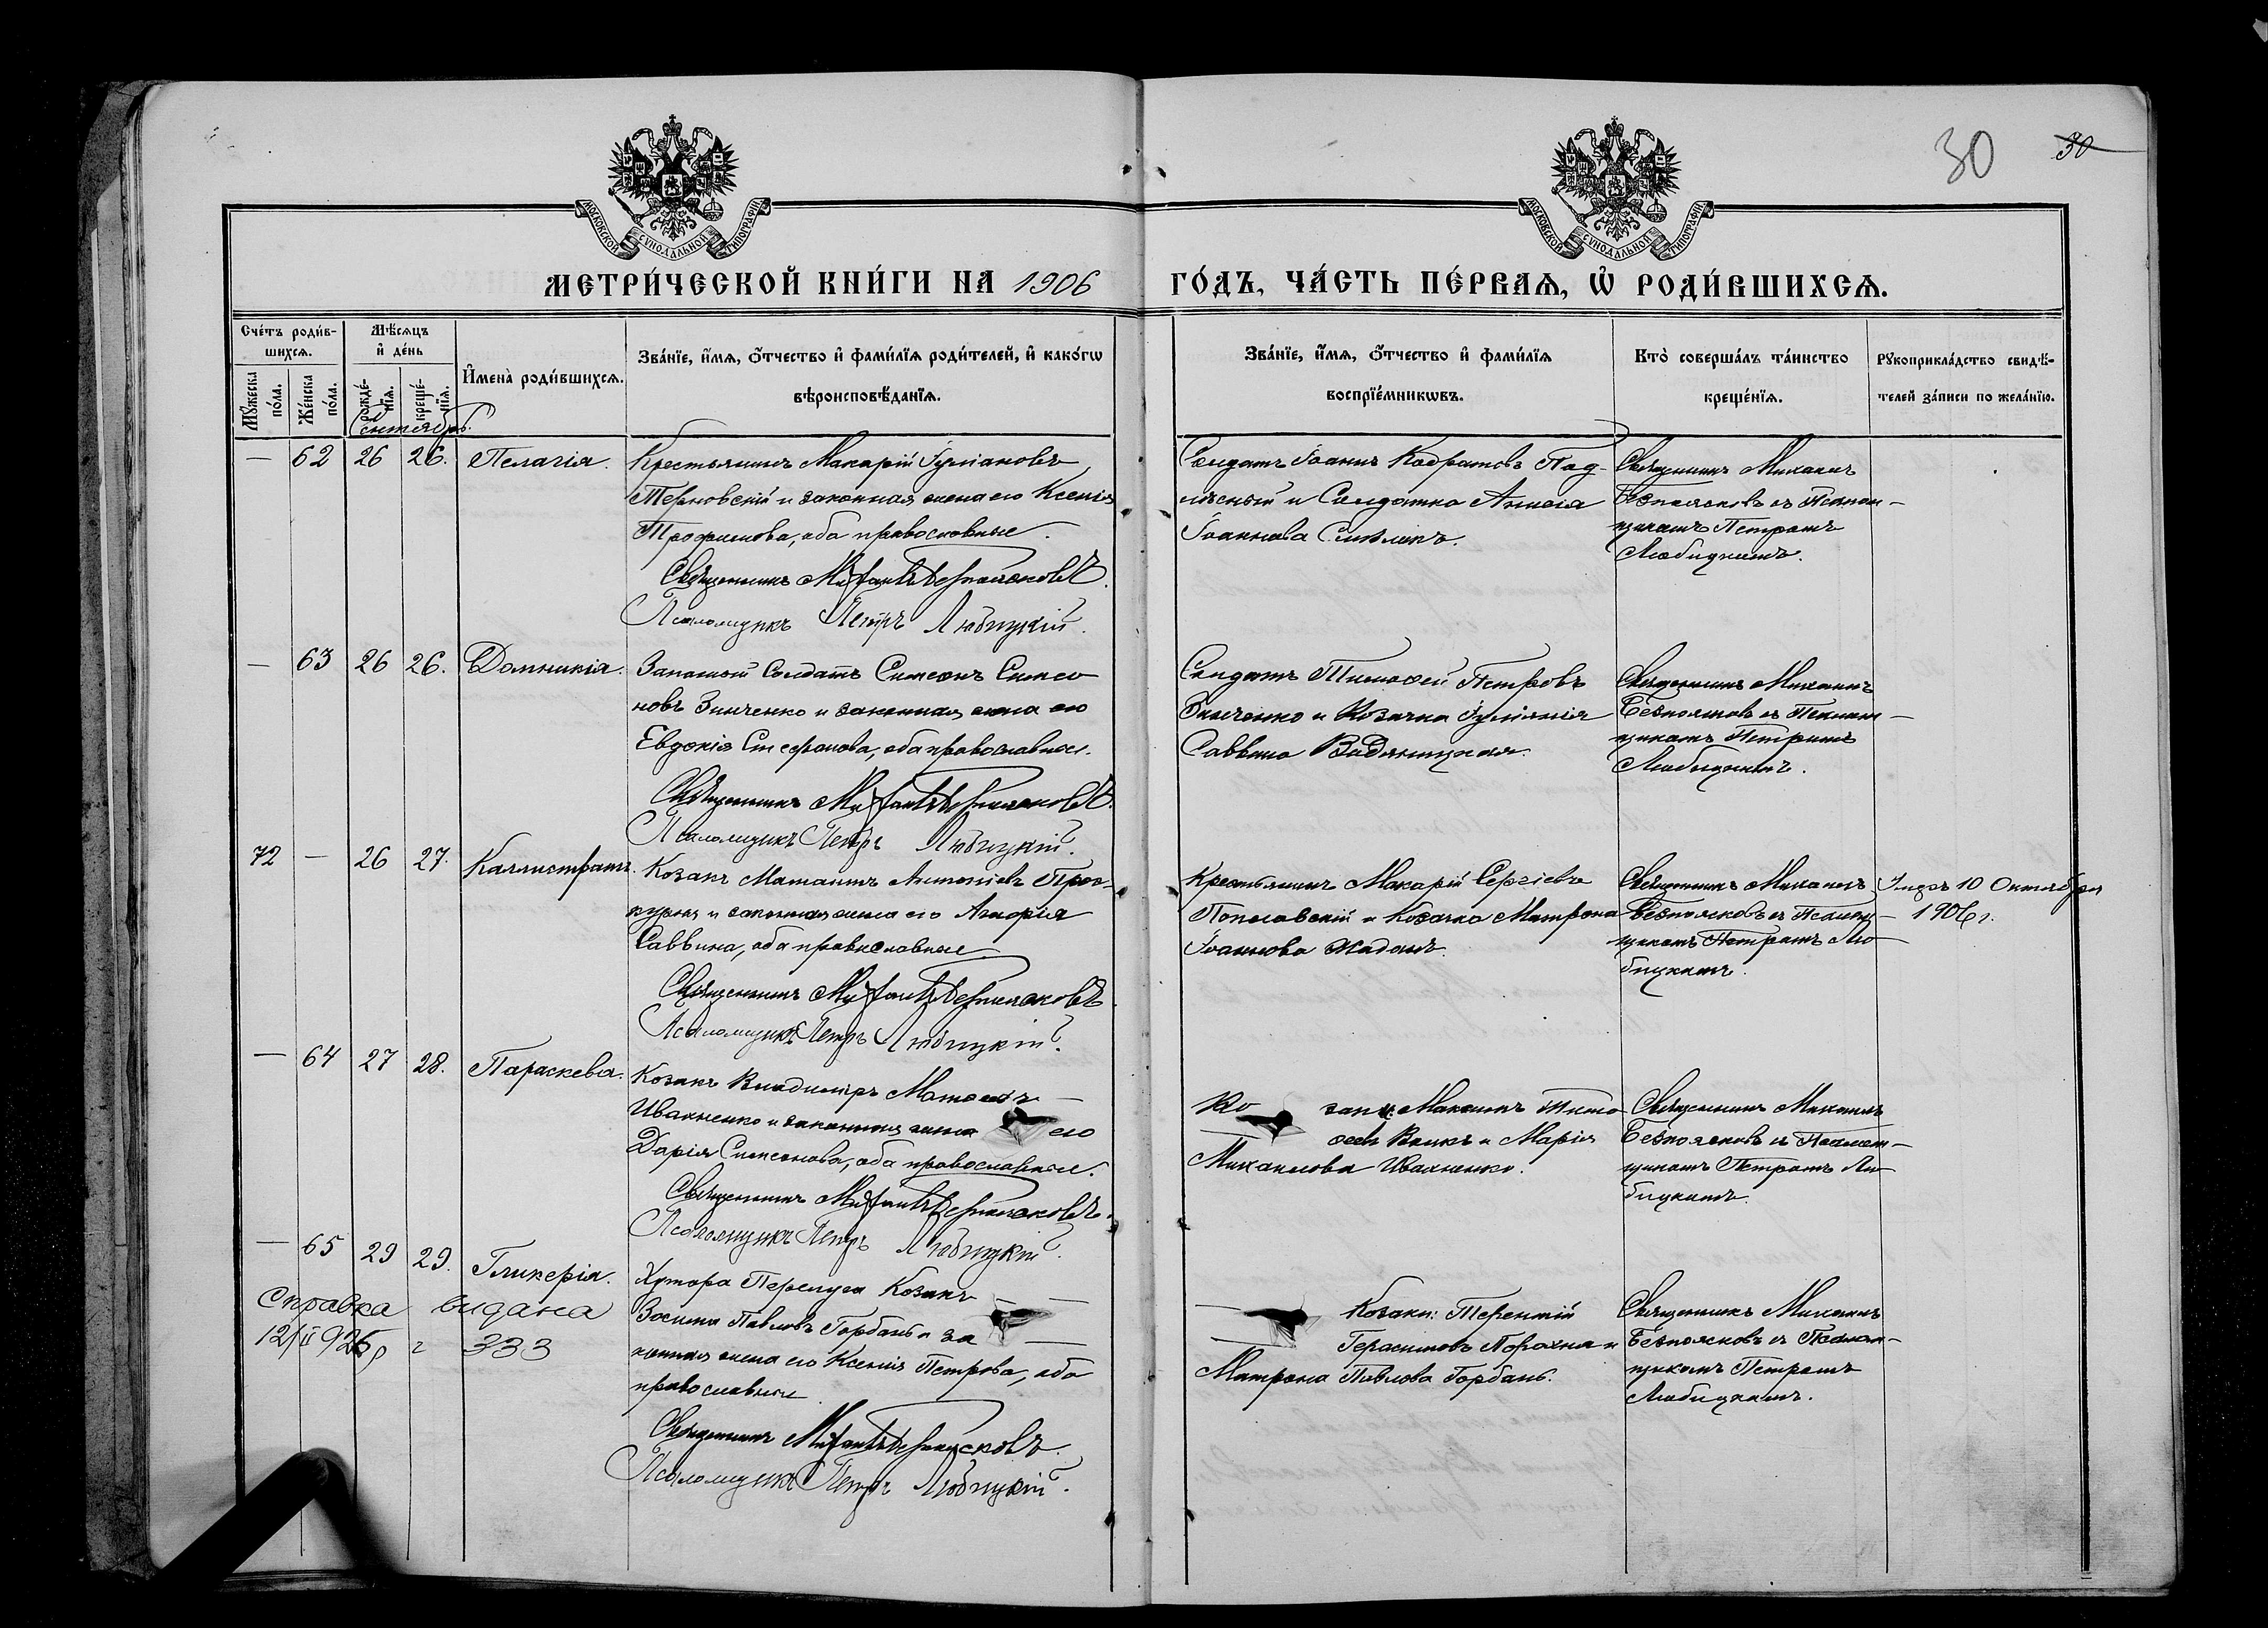 30 30
МОСКОВСКОЙ СѴНОДАЛЬНОЙ ТИПОГРАФІИ
МОСКОВСКОЙ СѴНОДАЛЬНОЙ ТИПОГРАФІИ
МЕТРИ́ЧЕСКОЙ КНИ́ГИ НА 1906 ГО́ДЪ, ЧА́СТЬ ПЕ́РВАѦ, Ѽ РОДИ́ВШИХСѦ.
Сче́тъ роди́вшихсѧ.
Мꙋ́жеска по́ла.
Же́нска по́ла.
Мѣ́сѧцъ и҆ де́нь
рожде́нїѧ.
креще́нїѧ.
И҆мена̀ роди́вшихсѧ.
Зва́нїе, и҆́мѧ, ѻ҆́тчество и҆ фами́лїѧ роди́телей, и҆ како́гѡ
вѣроисповѣ́данїѧ.
Зва́нїе, и҆́мѧ, ѻ҆́тчество и҆ фами́лїѧ
воспрїе́мникѡвъ.
Кто̀ соверша́лъ та́инство
креще́нїѧ.
Рꙋкоприкла́дство свидѣ́-
телей за́писи по жела́нїю.
Сентябрь.
— 62 26 26. Пелагія.
Крестьянинъ Макарій Іуліановъ
Терновскій и законная жена его Ксенія
Трофимова, оба православные.
Священникъ Михаилъ Безпоясковъ.
Псаломщикъ Петръ Любицкій.
Солдатъ Іоаннъ Кодратовъ Под-
лѣсный и Солдатка
Іоаннова
Священникъ Михаилъ
Безпоясковъ съ Псалом-
щикомъ Петромъ
Любицкимъ.
— 63 26 26. Домникія.
Запасный Солдатъ Симеонъ Симео
новъ Зинченко и законная жена его
Евдокія Стефанова, оба православные.
Священникъ Михаилъ Безпоясковъ.
Псаломщикъ Петръ Любицкій.
Солдатъ Тимофей Петровъ
Зинченко и Козачка Іуліанія
Саввина
Священникъ Михаилъ
Безпоясковъ съ Псалом-
щикомъ Петромъ
Любицкимъ.
72 — 26 27. Каллистратъ.
Козакъ Антоніевъ Прос-
и законная жена его
Саввина, оба православные.
Священникъ Михаилъ Безпоясковъ
Псаломщикъ Петръ Любицкій.
Крестьянинъ Макарій Сергіевъ
Пополовскій и Козачка Матрона
Іоаннова Жаданъ.
Священникъ Михаилъ
Безпоясковъ съ Псаломщи-
комъ Петромъ Лю-
бицкимъ.
Умеръ 10 Октября
1906 г.
— 64 27 28. Параскева.
Козакъ Владиміръ
Ивахненко и законная жена его
Дарія Симеонова, оба православные.
Священникъ Михаилъ Безпоясковъ.
Псаломщикъ Петръ Любицкій.
Ко заки Максимъ Тимо
феевъ и Марія
Михаилова Ивахненко.
Священникъ Михаилъ
Безпоясковъ съ Псалом-
щикомъ Петромъ Лю-
бицкимъ.
— 65 29 29. Гликерія.
Хутора Козакъ
Зосима Павловъ Горбань и за
конная жена его Ксенія Петрова, оба
православные
Священникъ Михаилъ Безпоясковъ.
Псаломщикъ Петръ Любицкій.
Козаки: Терентій
Герасимовъ и
Матрона Павлова Горбань.
Священникъ Михаилъ
Безпоясковъ съ Псалом-
щикомъ Петромъ
Любицкимъ.
Справка видана
333